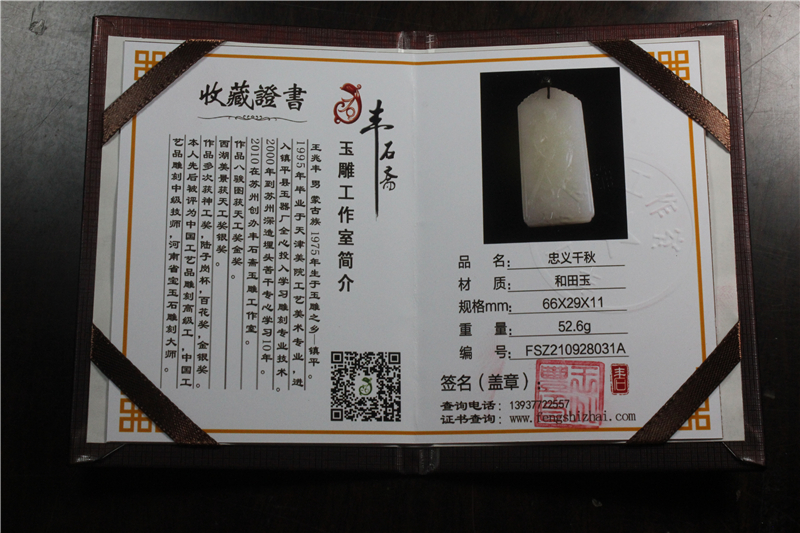 收藏證書
丰石斋
玉雕工作室简介
王兆丰 男 蒙古族 1975年生于玉雕之乡—镇平。
1995年毕业于天津美院工艺美术专业，进
入镇平县玉器厂全心投入学习雕刻专业技术。
2000年到苏州深造埋头苦干专心学习10年。
2010在苏州创办丰石斋玉雕工作室。
作品八骏图获天工奖金奖。
西湖美景获天工奖银奖。
作品多次获神工奖，陆子岗杯，百花奖，金银奖。
本人先后被评为中国工艺品雕刻高级工，中国工
艺品雕刻中级技师，河南省宝玉石雕刻大师。
品 名： 忠义千秋
材 质： 和田玉
规格mm： 66X29X11
重 量： 52.6g
编 号： FSZ210928031A
签名（盖章）：
丰石
查询电话：13937722557
证书查询：www.fengshizhai.com